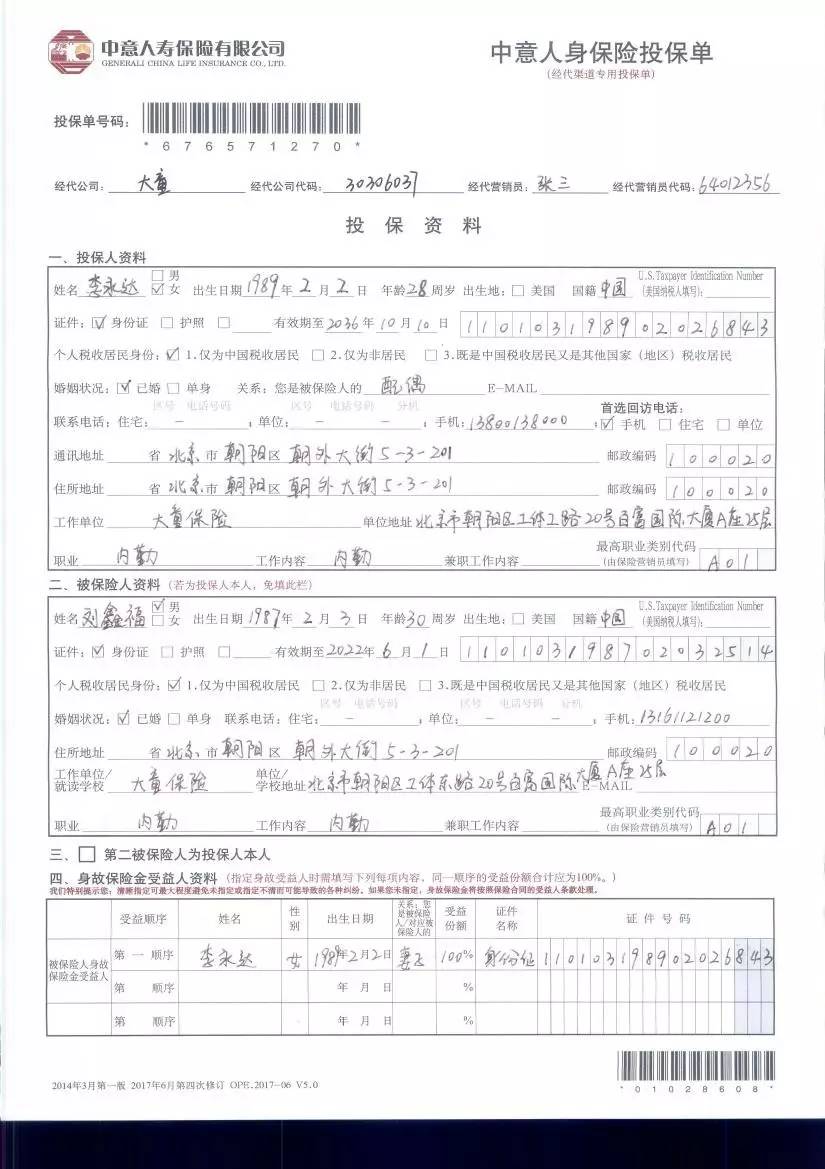 中意人寿保险有限公司
GENERALI CHINA LIFE INSURANCE CO., LTD.
中意人身保险投保单
(经代渠道专用投保单)
投保单号码：
*676571270*
经代公司：大童 经代公司代码：30306037 经代营销员：张三 经代营销员代码：64012356
投保资料
一、投保人资料
姓名 李永达 □男 ☑女 出生日期 1989年 2月 2日 年龄28周岁 出生地：□美国 国籍 中国 U.S.Taxpayer Identification Number (美国纳税人填写)：
证件：☑身份证 □护照 □ 有效期至2036年10月10日 110103198902026843
个人税收居民身份：☑1.仅为中国税收居民 □2.仅为非居民 □3.既是中国税收居民又是其他国家（地区）税收居民
婚姻状况：☑已婚 □单身 关系：您是被保险人的 配偶 E-MAIL
区号 电话号码 区号 电话号码 分机
联系电话：住宅： － ；单位： － － ；手机：13800138000 ；首选回访电话：☑手机 □住宅 □单位
通讯地址 省 北京市 朝阳区 朝外大街5-3-201 邮政编码 100020
住所地址 省 北京市 朝阳区 朝外大街5-3-201 邮政编码 100020
工作单位 大童保险 单位地址 北京市朝阳区工体工路20号百富国际大厦A座25层
职业 内勤 工作内容 内勤 兼职工作内容 最高职业类别代码 (由保险营销员填写) A01
二、被保险人资料（若为投保人本人，免填此栏）
姓名 刘鑫福 ☑男 □女 出生日期 1987年 2月 3日 年龄30周岁 出生地：□美国 国籍 中国 U.S.Taxpayer Identification Number (美国纳税人填写)：
证件：☑身份证 □护照 □ 有效期至2022年 6月 1日 110103198702032514
个人税收居民身份：☑1.仅为中国税收居民 □2.仅为非居民 □3.既是中国税收居民又是其他国家（地区）税收居民
区号 电话号码 区号 电话号码 分机
婚姻状况：☑已婚 □单身 联系电话：住宅： － ；单位： － － ；手机：13161121200
住所地址 省 北京市 朝阳区 朝外大街5-3-201 邮政编码 100020
工作单位/就读学校 大童保险 单位/学校地址 北京市朝阳区工体东路20号百富国际大厦A座25层 E-MAIL
职业 内勤 工作内容 内勤 兼职工作内容 最高职业类别代码 (由保险营销员填写) A01
三、□第二被保险人为投保人本人
四、身故保险金受益人资料（指定身故受益人时需填写下列每项内容，同一顺序的受益份额合计应为100%。）
我们特别提示您：清晰指定可最大程度避免未指定或指定不清而可能导致的各种纠纷。如果您未指定，身故保险金将按照保险合同的受益人条款处理。
受益顺序 姓名 性别 出生日期 关系：您是被保险人/对应被保险人的 受益份额 证件名称 证件号码
被保险人身故保险金受益人 第一顺序 李永达 女 1989年2月2日 妻子 100% 身份证 110103198902026843
第 顺序 年 月 日 %
第 顺序 年 月 日 %
2014年3月第一版 2017年6月第四次修订 OPE.2017-06 V5.0
*01028608*